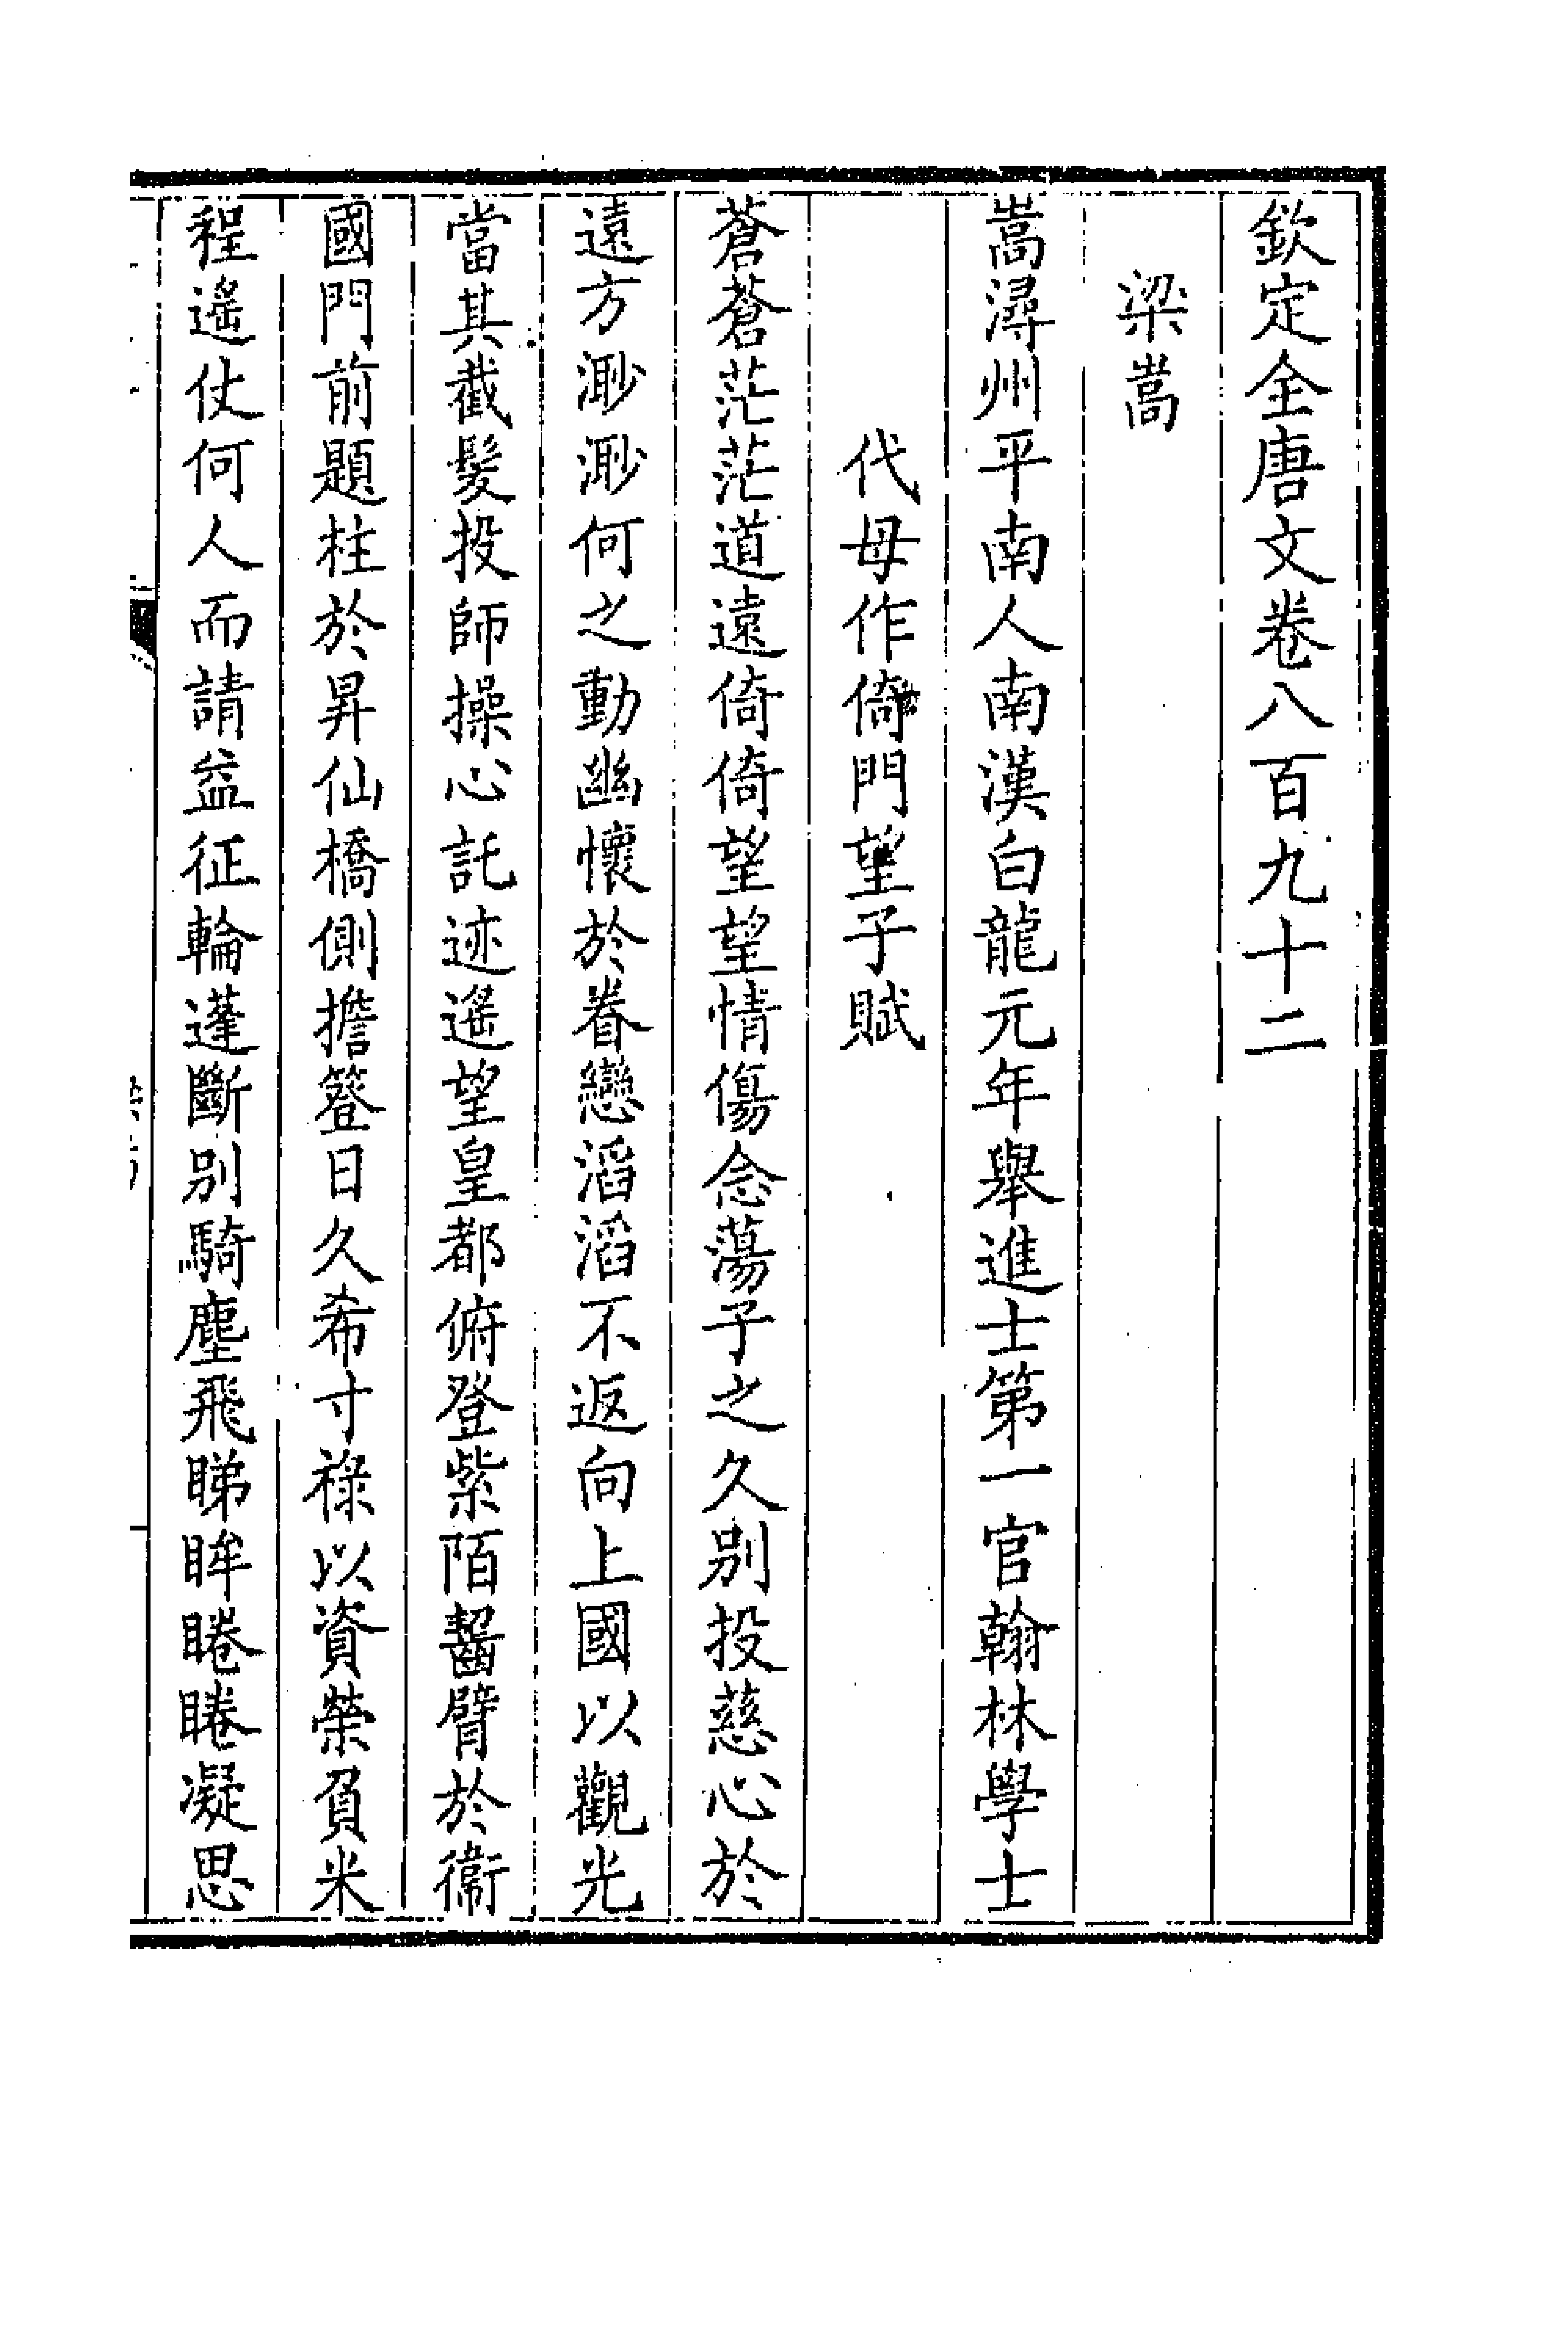 欽定全唐文卷八百九十二
梁嵩
嵩潯州平南人南漢白龍元年舉進士第一官翰林學士
代母作倚門望子賦
蒼蒼茫茫道遠倚倚望望情傷念蕩子之久別投慈心於
遠方渺渺何之動幽懷於眷戀滔滔不返向上國以觀光
當其截髮投師操心託迹遙望皇都俯登紫陌齧臂於衞
國門前題柱於昇仙橋側擔簦日久希寸祿以資榮負米
程遙仗何人而請益征輪蓬斷別騎塵飛睇眸睠睠凝思